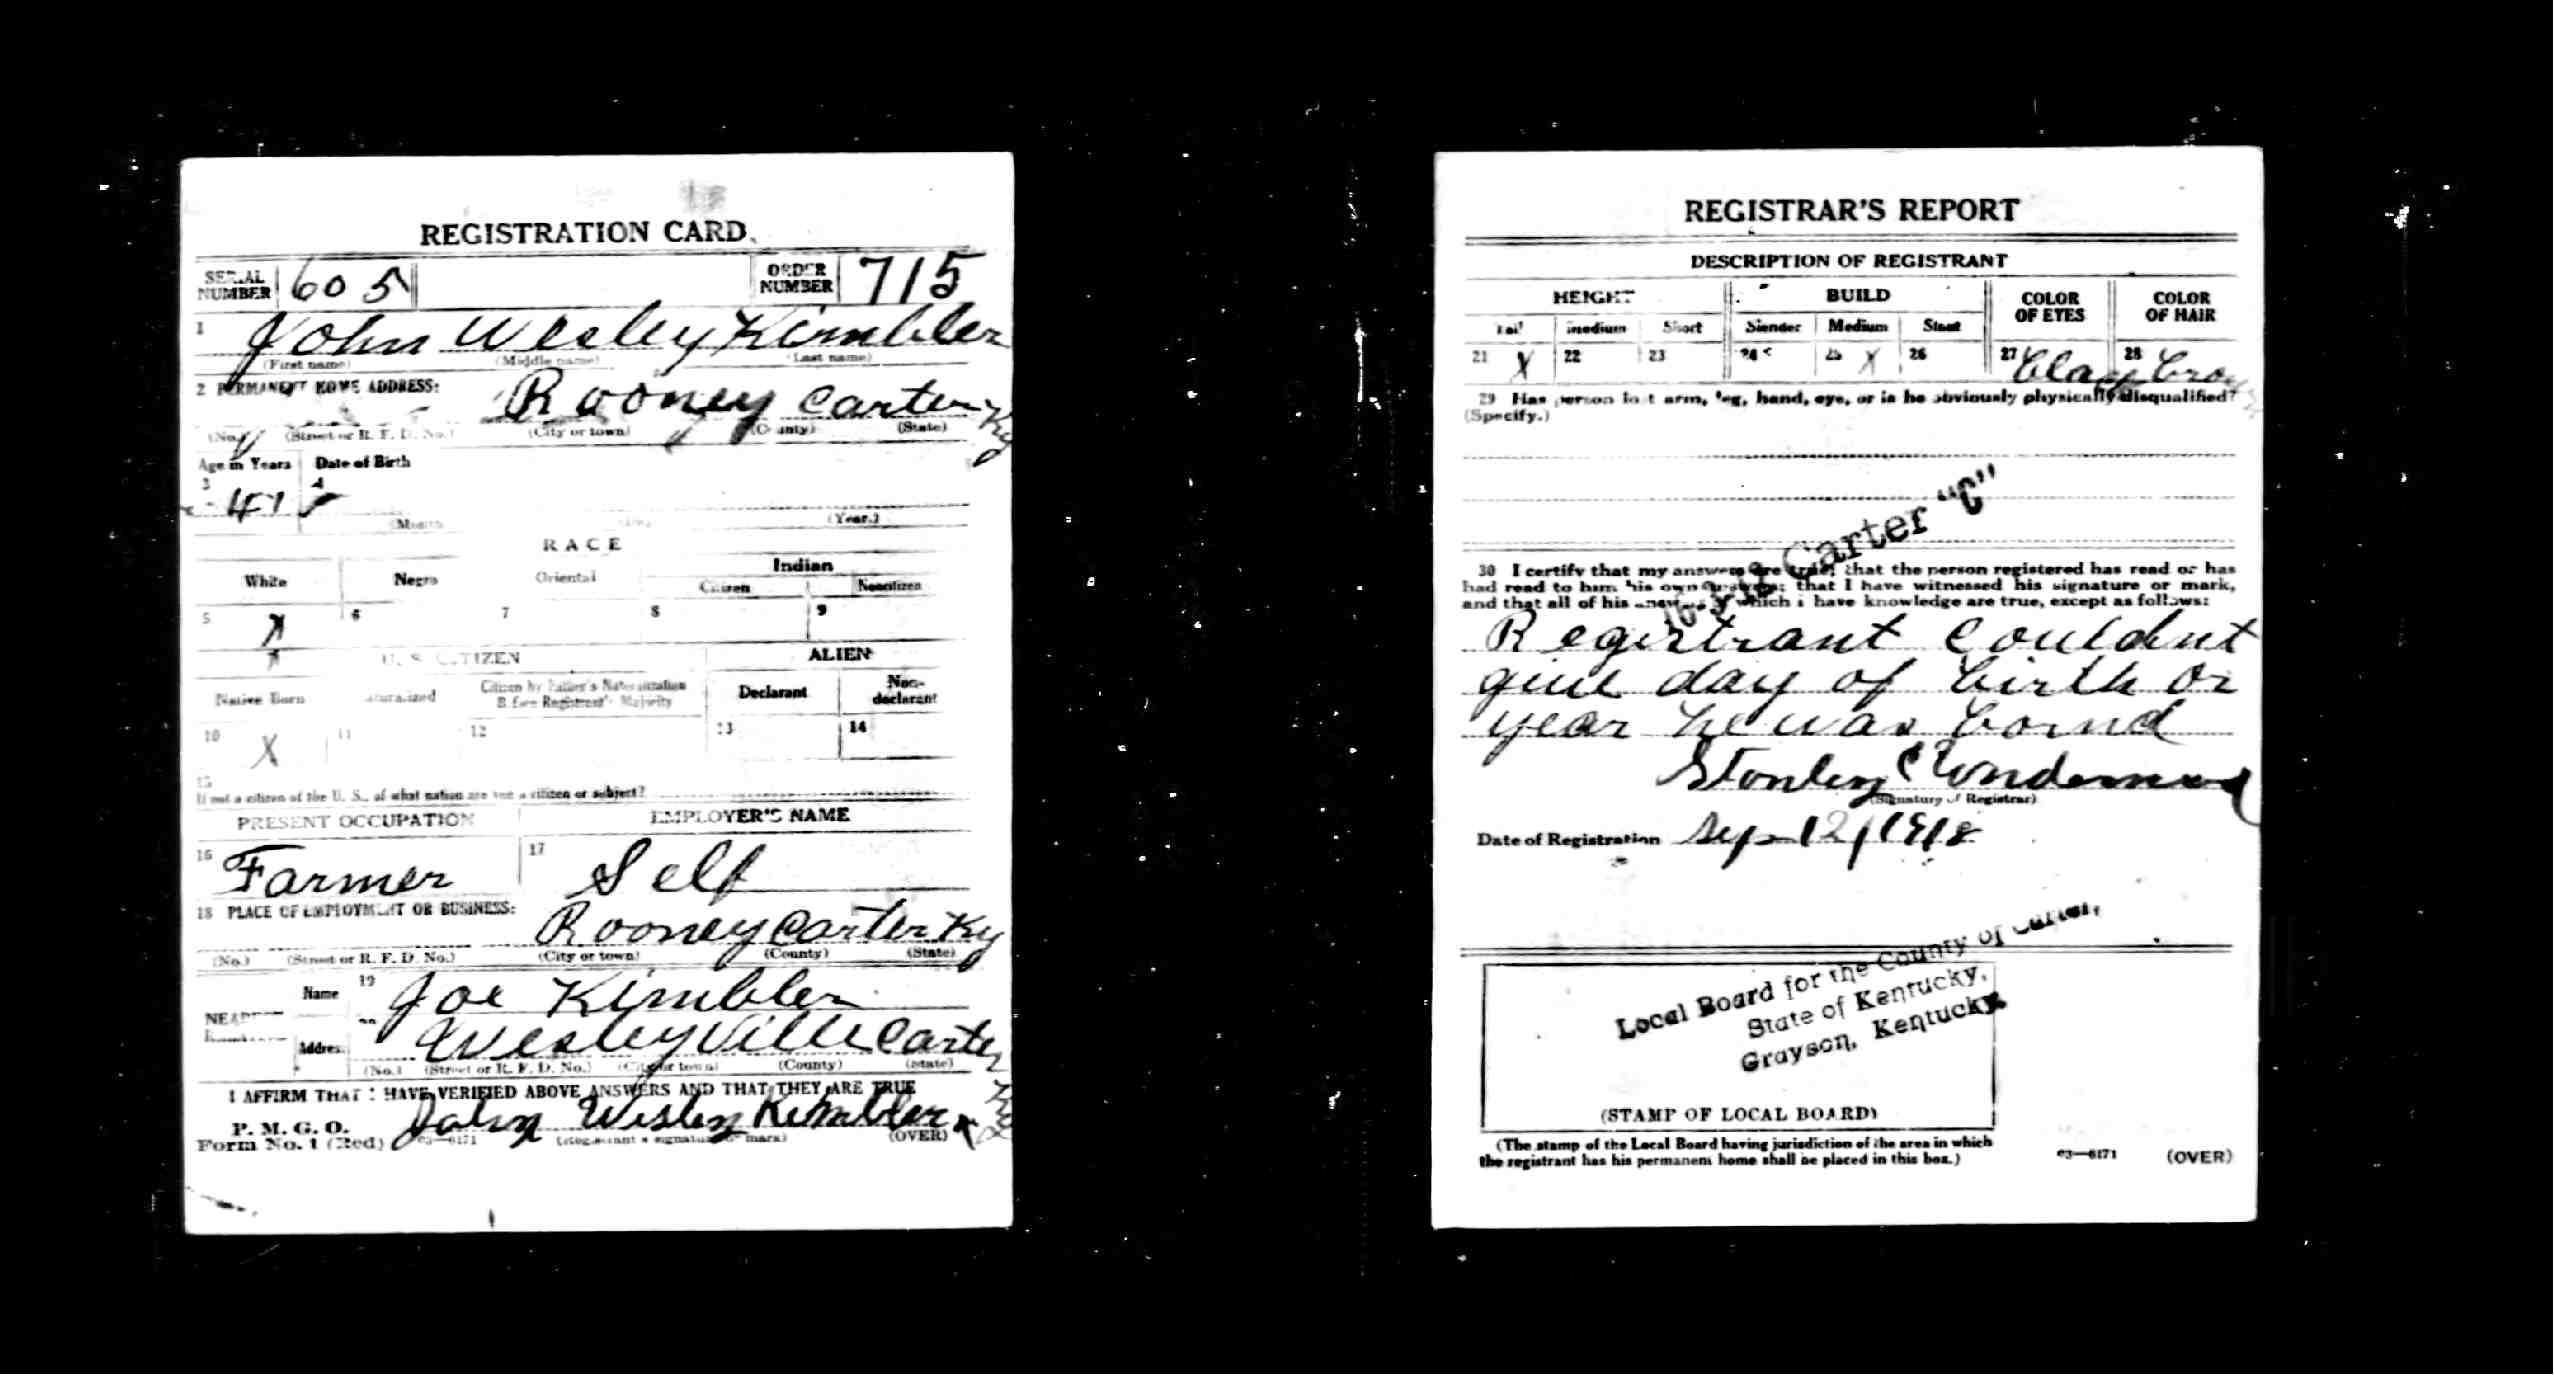 REGISTRATION CARD
SERIAL NUMBER 605 ORDER NUMBER 715
1 John Wesley Kimbler
(First name) (Middle name) (Last name)
2 PERMANENT HOME ADDRESS:
Rooney Carter Ky
(No.) (Street or R. F. D. No.) (City or town) (County) (State)
Age in Years Date of Birth
3 41 4
(Month) (Year.)
RACE
White Negro Oriental Indian
Citizen Noncitizen
5 X 6 7 8 9
U. S. CITIZEN ALIEN
Native Born Naturalized Citizen by Father's Naturalization Before Registrant's Majority Declarant Non-declarant
10 X 11 12 13 14
15
If not a citizen of the U. S., of what nation are you a citizen or subject?
PRESENT OCCUPATION EMPLOYER'S NAME
16 Farmer 17 Self
18 PLACE OF EMPLOYMENT OR BUSINESS:
Rooney Carter Ky
(No.) (Street or R. F. D. No.) (City or town) (County) (State)
Name 19 Joe Kimbler
NEAREST
Address Wesleyville Carter Ky
(No.) (Street or R. F. D. No.) (City or town) (County) (State)
I AFFIRM THAT I HAVE VERIFIED ABOVE ANSWERS AND THAT THEY ARE TRUE
P. M. G. O.
Form No. 1 (Red) 03—6171 John Wesley Kimbler
(Registrant's signature or mark) (OVER)
REGISTRAR'S REPORT
DESCRIPTION OF REGISTRANT
HEIGHT BUILD COLOR OF EYES COLOR OF HAIR
Tall Medium Short Slender Medium Stout
21 X 22 23 24 25 X 26 27 28
29 Has person lost arm, leg, hand, eye, or is he obviously physically disqualified?
(Specify.)
Carter "C"
30 I certify that my answers are true; that the person registered has read or has
had read to him his own answers; that I have witnessed his signature or mark,
and that all of his answers of which I have knowledge are true, except as follows:
Regertrant couldnt
give day of birth or
year he was bornd
Stanley
(Signature of Registrar)
Date of Registration Sep 12/1918
Local Board for the County of Carter,
State of Kentucky,
Grayson, Kentucky.
(STAMP OF LOCAL BOARD)
(The stamp of the Local Board having jurisdiction of the area in which
the registrant has his permanent home shall be placed in this box.)
03—6171 (OVER)